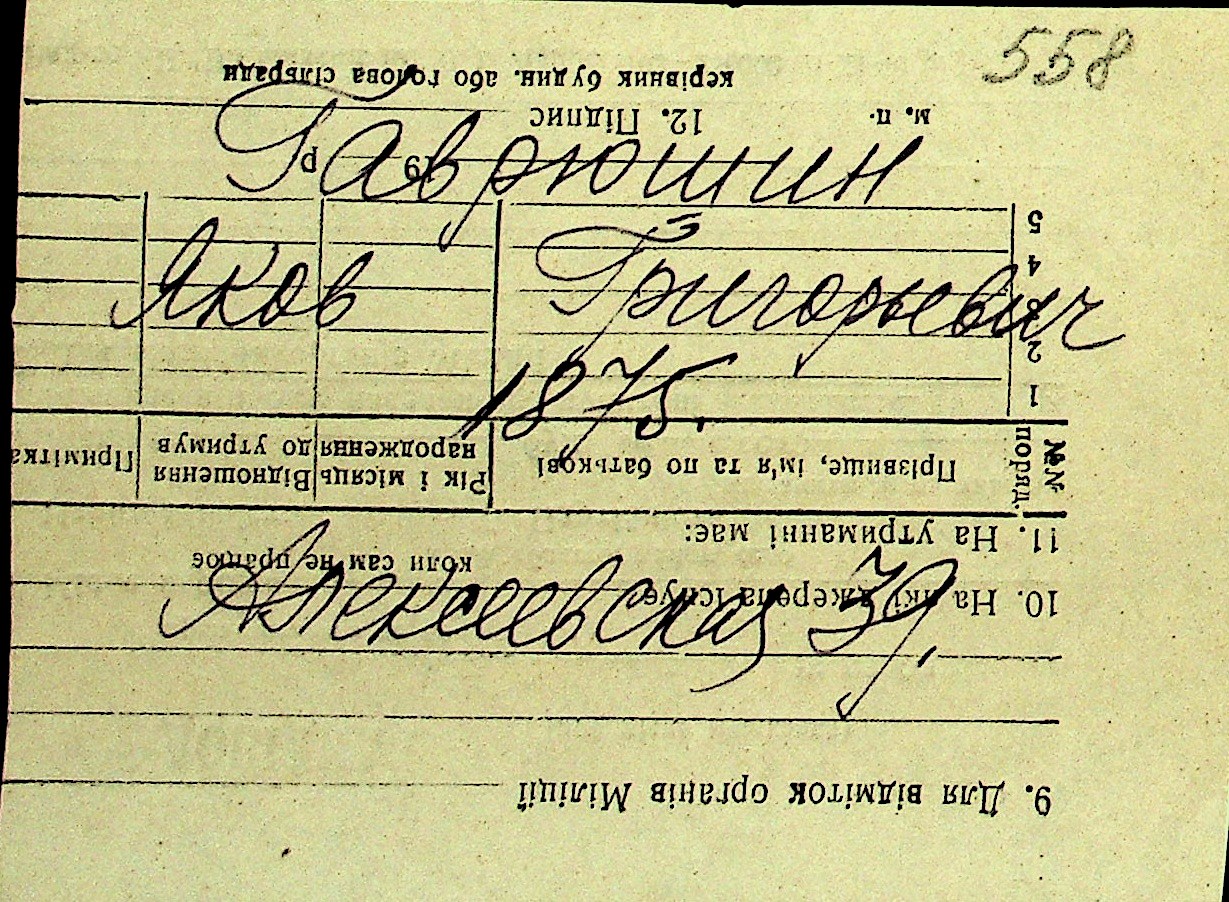 558
Гаврюшин
Яков Григорьевич
1875.
Алексеевская 39.
9. Для відміток органів Міліції
10. На які джерела існує,
коли сам не працює
11. На утриманні має:
№№ поряд. Прізвище, ім'я та по батькові Рік і місяць народження Відношення до утримув Примітка
1
2
3
4
5
19 р
м. п. 12. Підпис
керівник будин. або голова сільради